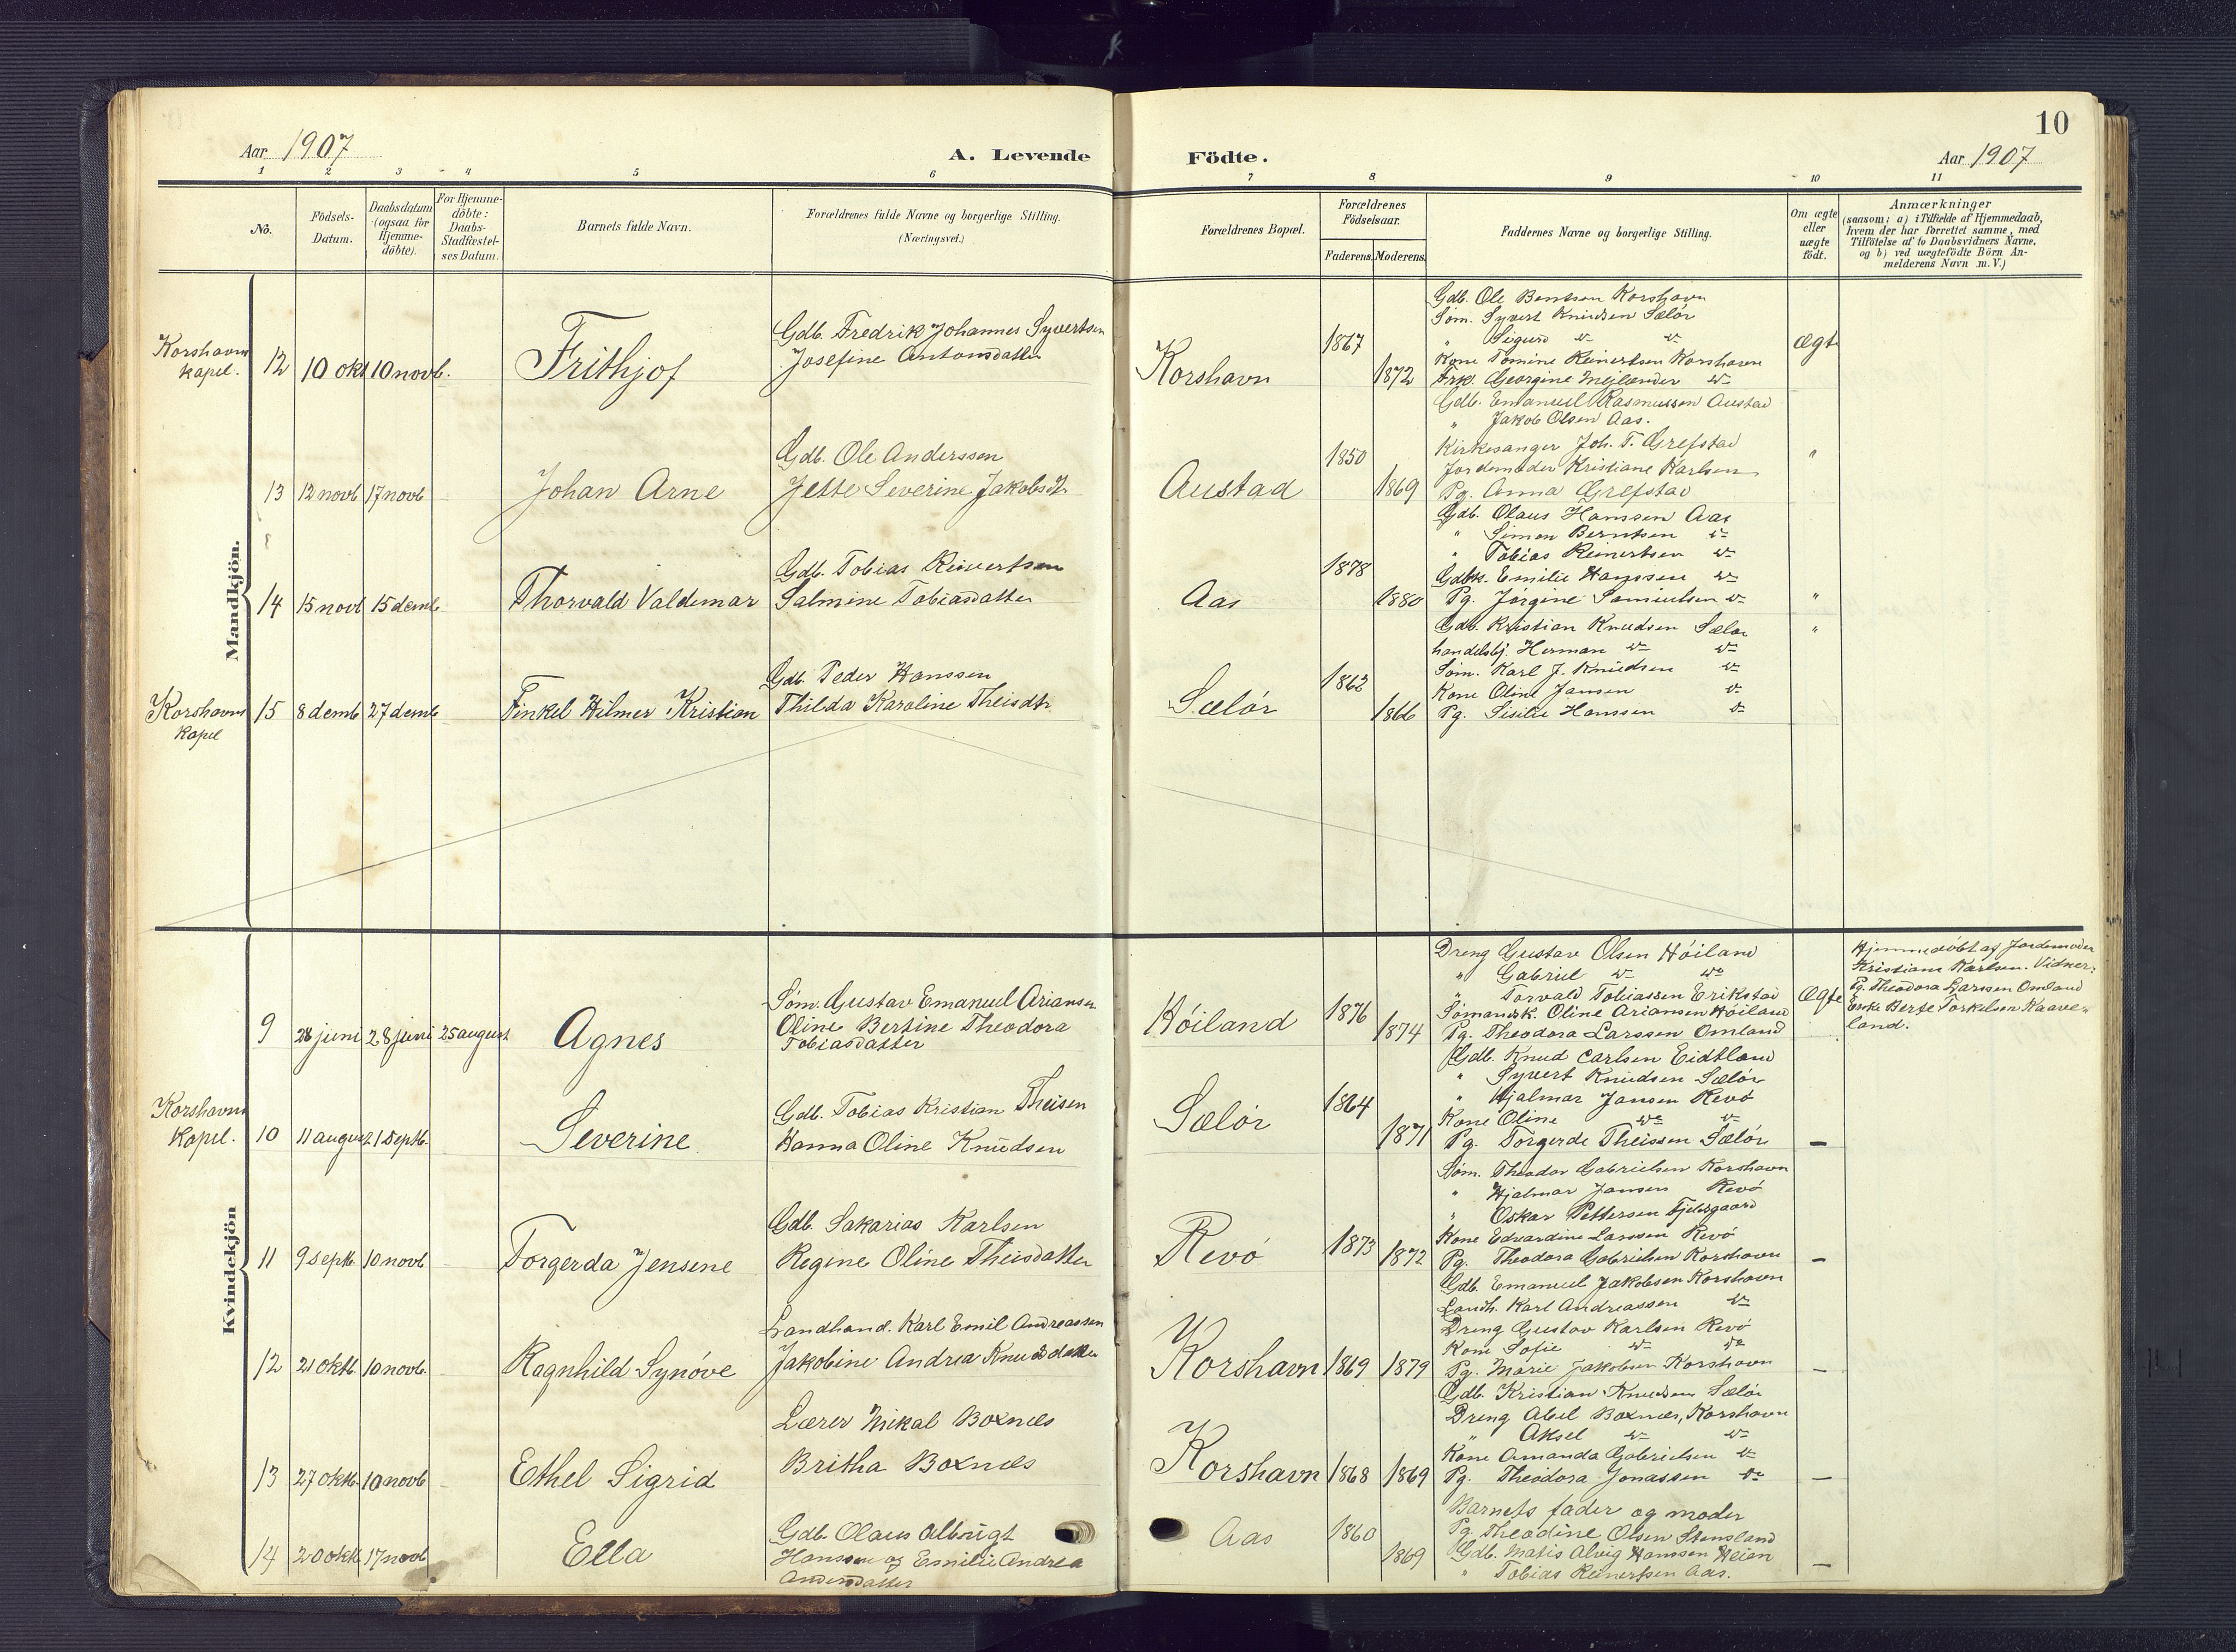 10
Aar 1907
A. Levende Födte.
Aar 1907
1 2 3 4 5 6 7 8 9 10 11
No.
Födsels-Datum.
Daabsdatum (ogsaa for Hjemme-döbte).
For Hjemme-döbte: Daabs-Stadfæstel-ses Datum.
Barnets fulde Navn.
Forældrenes fulde Navne og borgerlige Stilling.
(Næringsvei.)
Forældrenes Bopæl.
Forældrenes Födselsaar.
Faderens. Moderens.
Faddernes Navne og borgerlige Stilling.
Om ægte eller uægte födt.
Anmærkninger
(saasom: a) i Tilfælde af Hjemmedaab,
hvem der har forrettet samme, med
Tilföielse af to Daabsvidners Navne,
og b) ved uægtefödte Börn An-
melderens Navn m. V.)
Mandkjön.
Korshavn kapel.
12 10 okt 10 novb. Frithjof
Gdb. Fredrik Johannes Syvertsen
Josefine Antonsdatter
Korshavn 1867 1872
Gdb. Ole Bentsen Korshavn
Söm. Syvert Knudsen Sælör
" Sigurd do do
Kone Tomine Reinertsen Korshavn
Frk. Georgine Mejlænder do
Ægte
13 12 novb 17 novb Johan Arne
Gdb. Ole Anderssen
Jette Severine Jakobsdtr
Austad 1850 1869
Gdb. Emanuel Rasmussen Austad
" Jakob Olsen Aas.
Kirkesanger Joh. T. Grefstad
Jordemoder Kristiane Karlsen
Pg. Anna Grefstad
"
14 15 novb 15 demb Thorvald Valdemar
Gdb. Tobias Reinertsen
Salmine Tobiasdatter
Aas 1878 1880
Gdb. Olaus Hanssen Aas
" Simon Berntsen do
" Tobias Reinertsen do
Gdbk. Emilie Hanssen do
Pg. Jörgine Samuelsen do
"
Korshavn Kapel
15 8 demb 27 demb Tinkel Hilmer Kristian
Gdb. Peder Hanssen
Thilda Karoline Theisdtr
Sælör 1862 1866
Gdb. Kristian Knudsen Sælör
handelsbj. Herman do do
Söm. Karl J. Knudsen do
Kone Oline Jansen do
Pg. Sisilie Hanssen do
"
Kvindekjön
9 28 juni 28 juni 25 august Agnes
Söm. Gustav Emanuel Ariansen
Oline Bertine Theodora
Tobiasdatter
Höiland 1876 1874
Dreng Gustav Olsen Höiland
" Gabriel do do
" Torvald Tobiassen Erikstad
Sömandsk. Oline Ariansen Höiland
Pg. Theodora Larssen Omland
Ægte
Hjemmedöbt af Jordemoder
Kristiane Karlsen. Vidner:
Pg. Theodora Larssen Omland
Enke Berte Torkelsen Kaave-
land.
Korshavn Kapel.
10 11 august 1 septb. Severine
Gdb. Tobias Kristian Theisen
Hanna Oline Knudsen
Sælör 1864 1871
Gdb. Knud Carlsen Eidtland
" Syvert Knudsen Sælör
" Hjalmar Jansen Revö
Kone Oline do do
Pg. Torgerde Theissen Sælör
—
11 9 septb 10 novb Torgerda Jensene
Gdb. Sakarias Karlsen
Regine Oline Theisdatter
Revö 1873 1872
Söm. Theodor Gabrielsen Korshavn
" Hjalmar Jansen Revö
" Oskar Pettersen Fjeldsgaard
Kone Edvardine Larssen Revö
Pg. Theodora Gabrielsen Korshavn
—
12 21 oktb. 10 novb. Ragnhild Synöve
Landhand. Karl Emil Andreassen
Jakobine Andrea Knudsdatter
Korshavn 1869 1879
Gdb. Emanuel Jakobsen Korshavn
Landh. Karl Andreassen do
Dreng Gustav Karlsen Revö
Kone Sofie do do
Pg. Marie Jakobsen Korshavn
—
13 27 oktb. 10 novb Ethel Sigrid
Lærer Mikal Boxnæs
Britha Boxnæs
Korshavn 1868 1869
Gdb. Kristian Knudsen Sælör
Dreng Abel Boxnæs, Korshavn
" Aksel do do
Kone Amanda Gabrielsen do
Pg. Theodora Jonassen do
—
14 20 oktb 17 novb Ella
Gdb. Olaus Albrigt
Hanssen og Emilie Andrea
Andersdatter
Aas 1860 1869
Barnets fader og moder
Pg. Theodine Olsen Stensland
Gdb. Matis Alvig Hanssen Heien
" Tobias Reinertsen Aas.
—